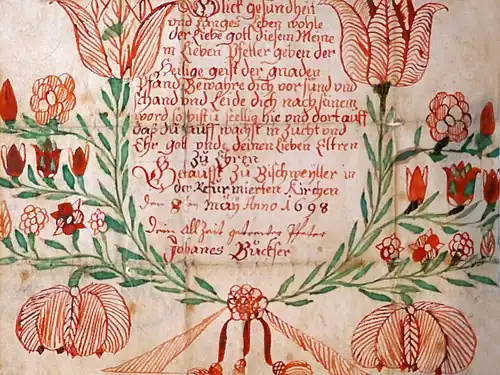 Glick gesundheit
und Langes Leben wohle
der Liebe gott diesem Meine
m Lieben Pfetter geben der
Heilige geist der gnaden
Pfand Bewahre dich vor sünd und
schand und Leide dich nach seinem
word so bistu seellig hie und dort auff
das du auff wachst in Zücht und
Ehr gott und deinen Lieben Eltren
Zu Ehren
Getaufft Zu Bischweÿller in
der Refurmierten Kirchen
den 8 ten Maÿ Anno 1698
Dein All Zeit getreuter Pfetter
Johanes Bückser